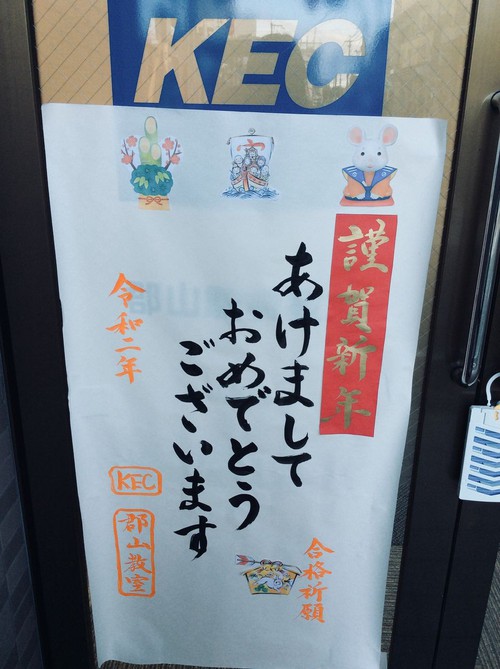 KEC
謹賀新年
あけまして
おめでとう
ございます
合格祈願
令和二年
KEC
郡山教室